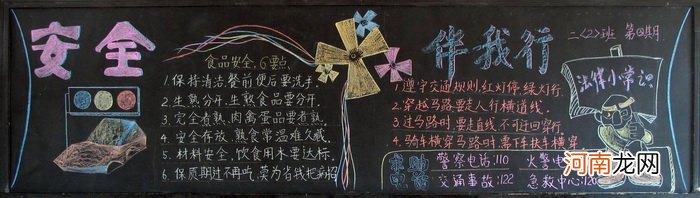 安全
伴我行
二〈2〉班 第②期
食品安全,6要点
1.保持清洁,餐前便后要洗手.
2.生熟分开,生熟食品要分开.
3.完全煮熟,肉禽蛋品要煮熟.
4.安全存放,熟食常温难久藏.
5.材料安全,饮食用水要达标.
6.保质期过不再吃,莫为省钱把病招
1.遵守交通规则,红灯停,绿灯行.
2.穿越马路要走人行横道线.
3.过马路时,要走直线,不可迂回穿行.
4.骑车横穿马路时,需下车扶车横穿.
求助电话
警察电话:110 火警电
交通事故:122 急救中心:120
法律小常识
河南龙网